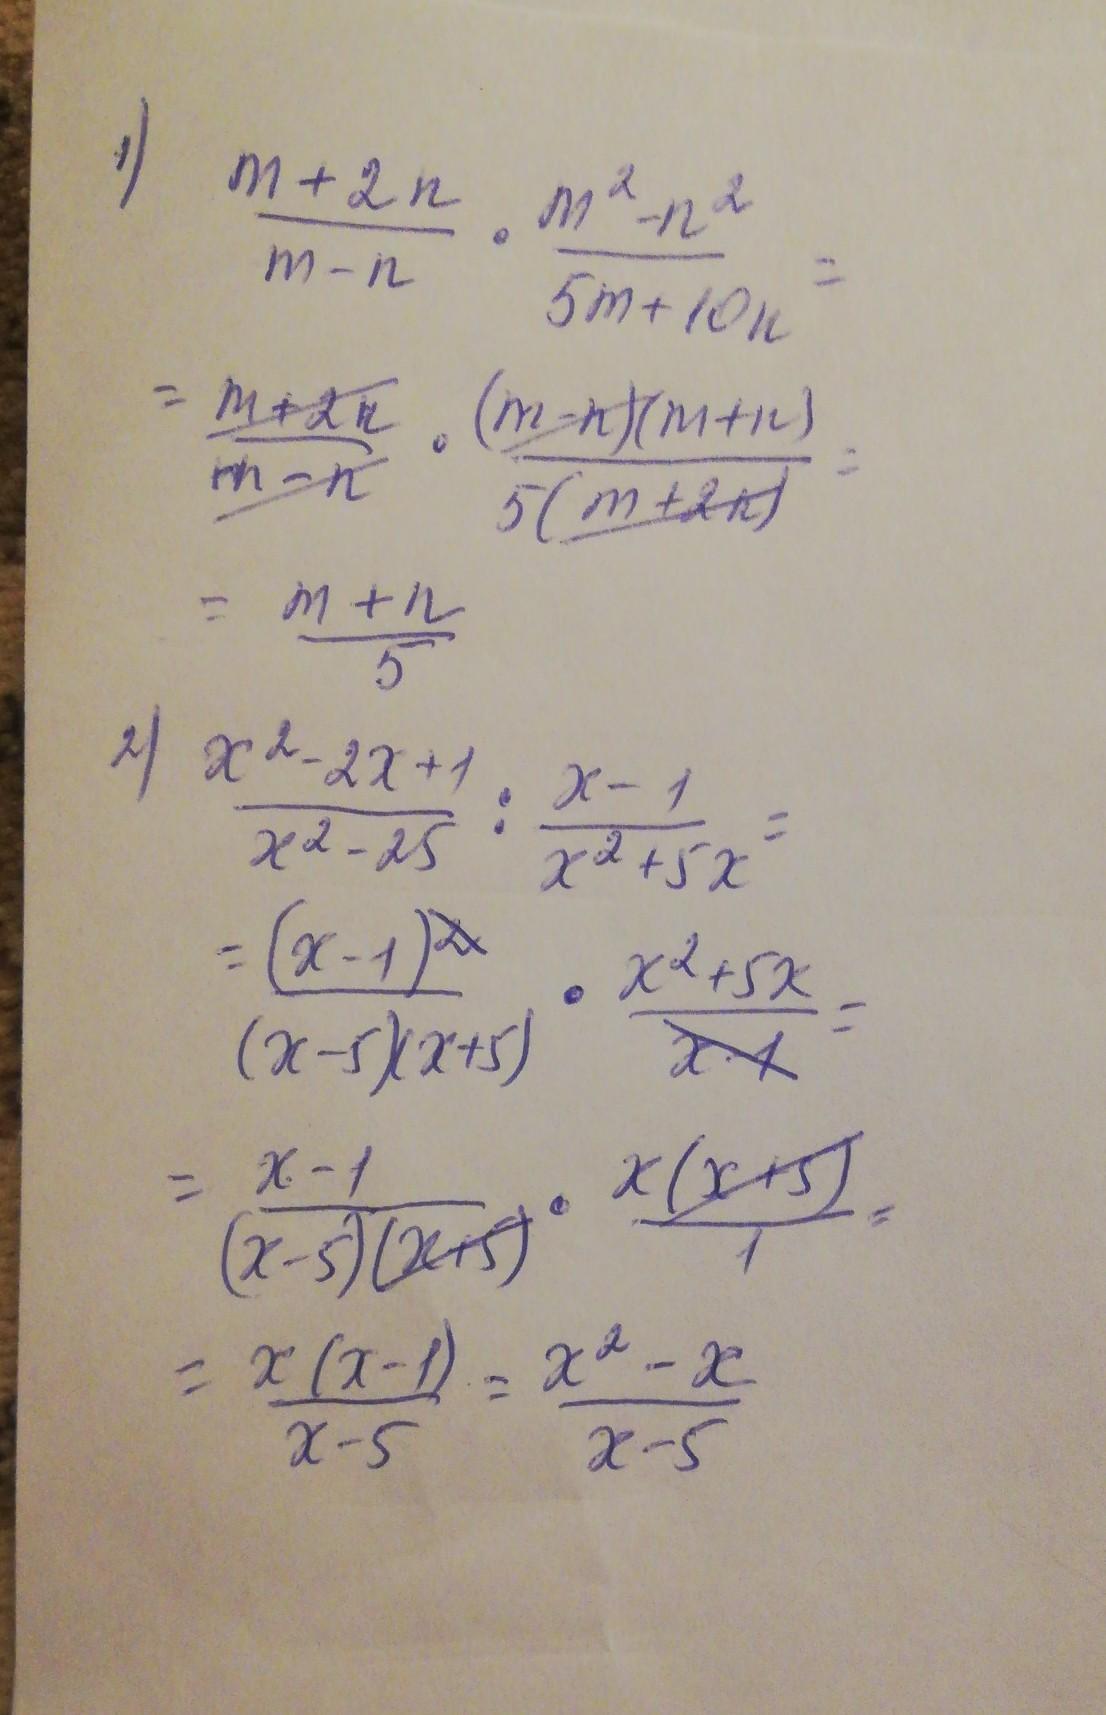 1) (m + 2n)/(m - n) · (m² - n²)/(5m + 10n) =
= (m + 2n)/(m - n) · ((m - n)(m + n))/(5(m + 2n)) =
= (m + n)/5
2) (x² - 2x + 1)/(x² - 25) : (x - 1)/(x² + 5x) =
= (x - 1)²/((x - 5)(x + 5)) · (x² + 5x)/(x - 1) =
= (x - 1)/((x - 5)(x + 5)) · (x(x + 5))/1 =
= (x(x - 1))/(x - 5) = (x² - x)/(x - 5)